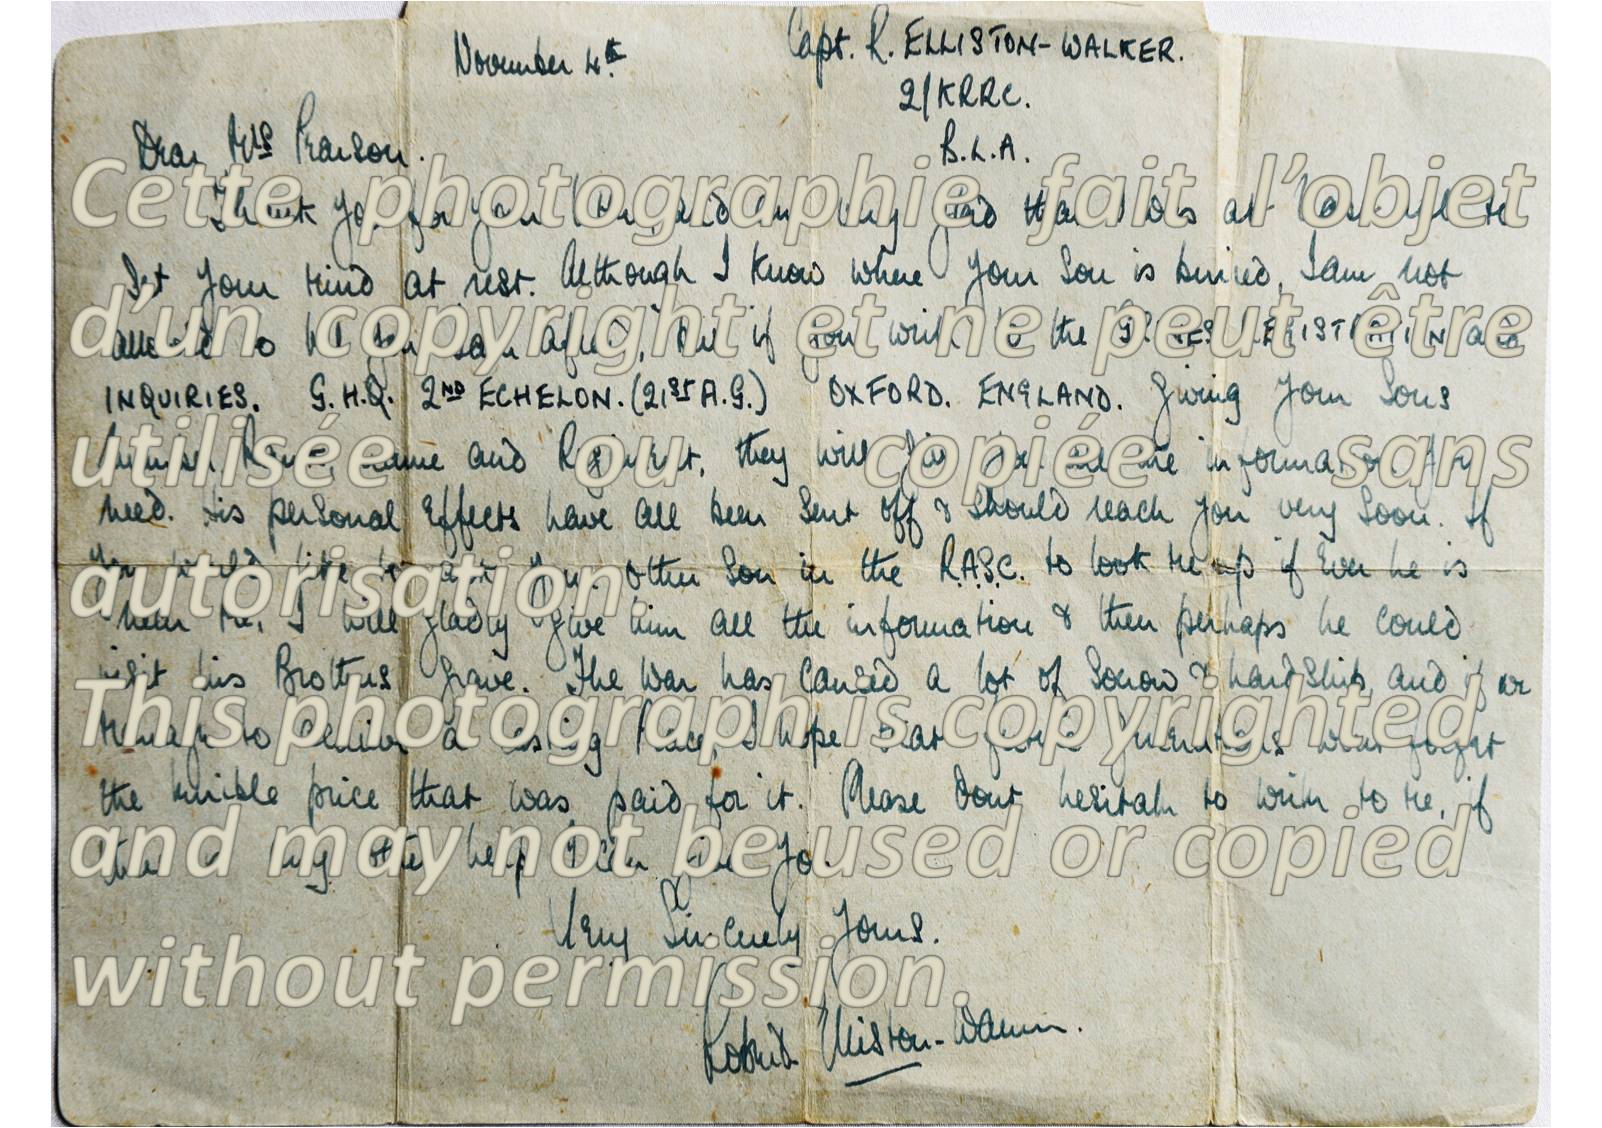 November 4th
Capt. R. ELLISTON-WALKER.
2/KRRC.
B.L.A.
Dear Mrs Pearson.
Thank you for your letter, and am very glad that I was at least able to
Set your mind at rest. Although I know where your Son is buried, I am not
allowed to let you say after, but if you write to the GRAVES REGISTRATION and
INQUIRIES. G.H.Q. 2ND ECHELON. (21st A.G.) OXFORD. ENGLAND. Giving your Sons
Number, Rank, name and Regiment, they will give you all the information you
need. His personal Effects have all been sent off & should reach you very Soon. If
you would like to ask your other Son in the R.A.S.C. to look me up if Ever he is
near me, I will gladly give him all the information & then perhaps he could
visit his Brothers grave. The War has Caused a lot of Sorrow & hardship, and if we
manage to a lasting Peace, I hope that future generations wont forget
the terrible price that was paid for it. Please dont hesitate to write to me, if
there is any other help I can give you.
Very Sincerely Yours.
Robert Elliston-Walker.
Cette photographie fait l’objet
d’un copyright et ne peut être
utilisée ou copiée sans
autorisation.
This photograph is copyrighted
and may not be used or copied
without permission.